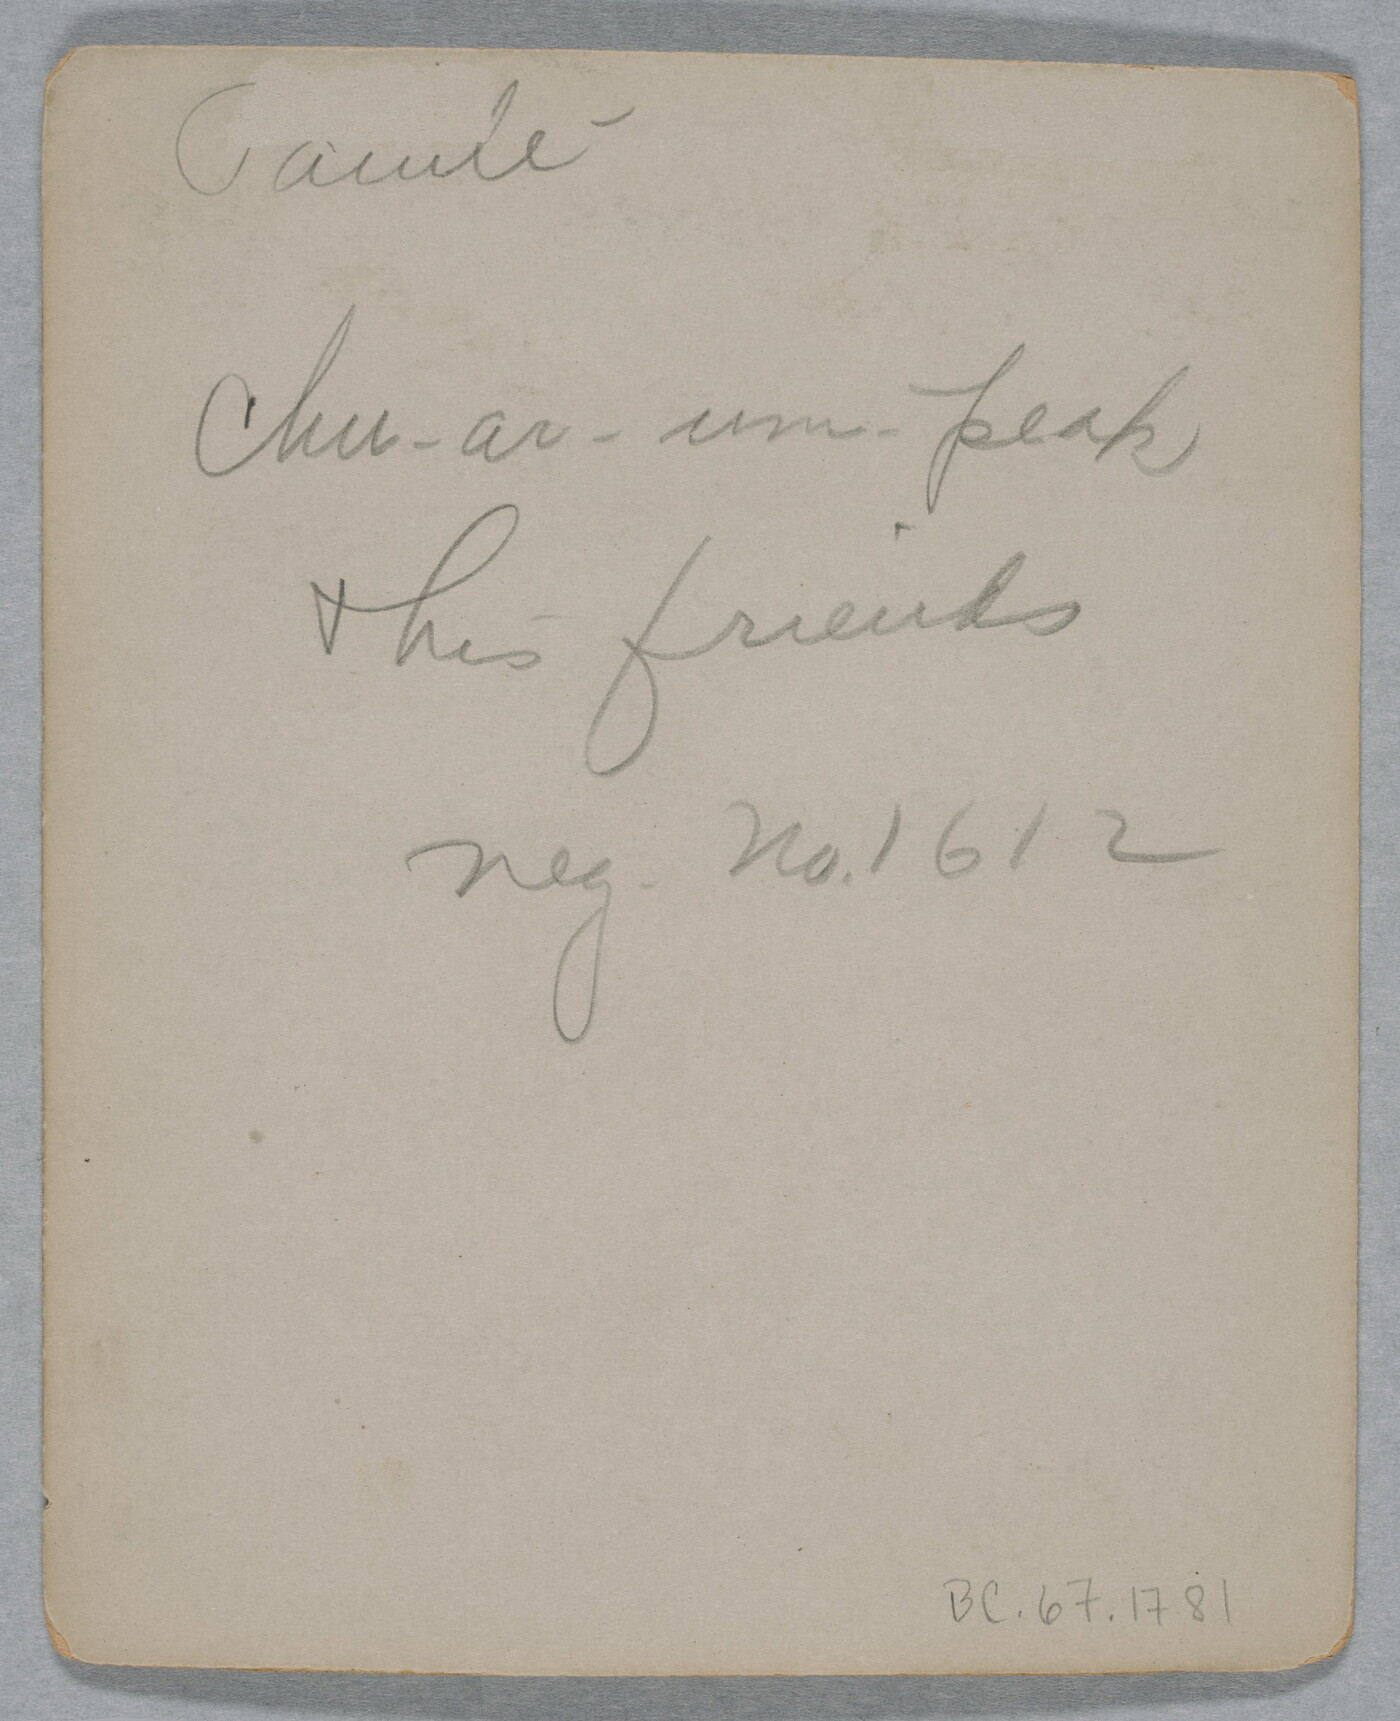 Painte
Chu-ar-um-peak
& his friends
neg. No. 1612
BC.67.1781